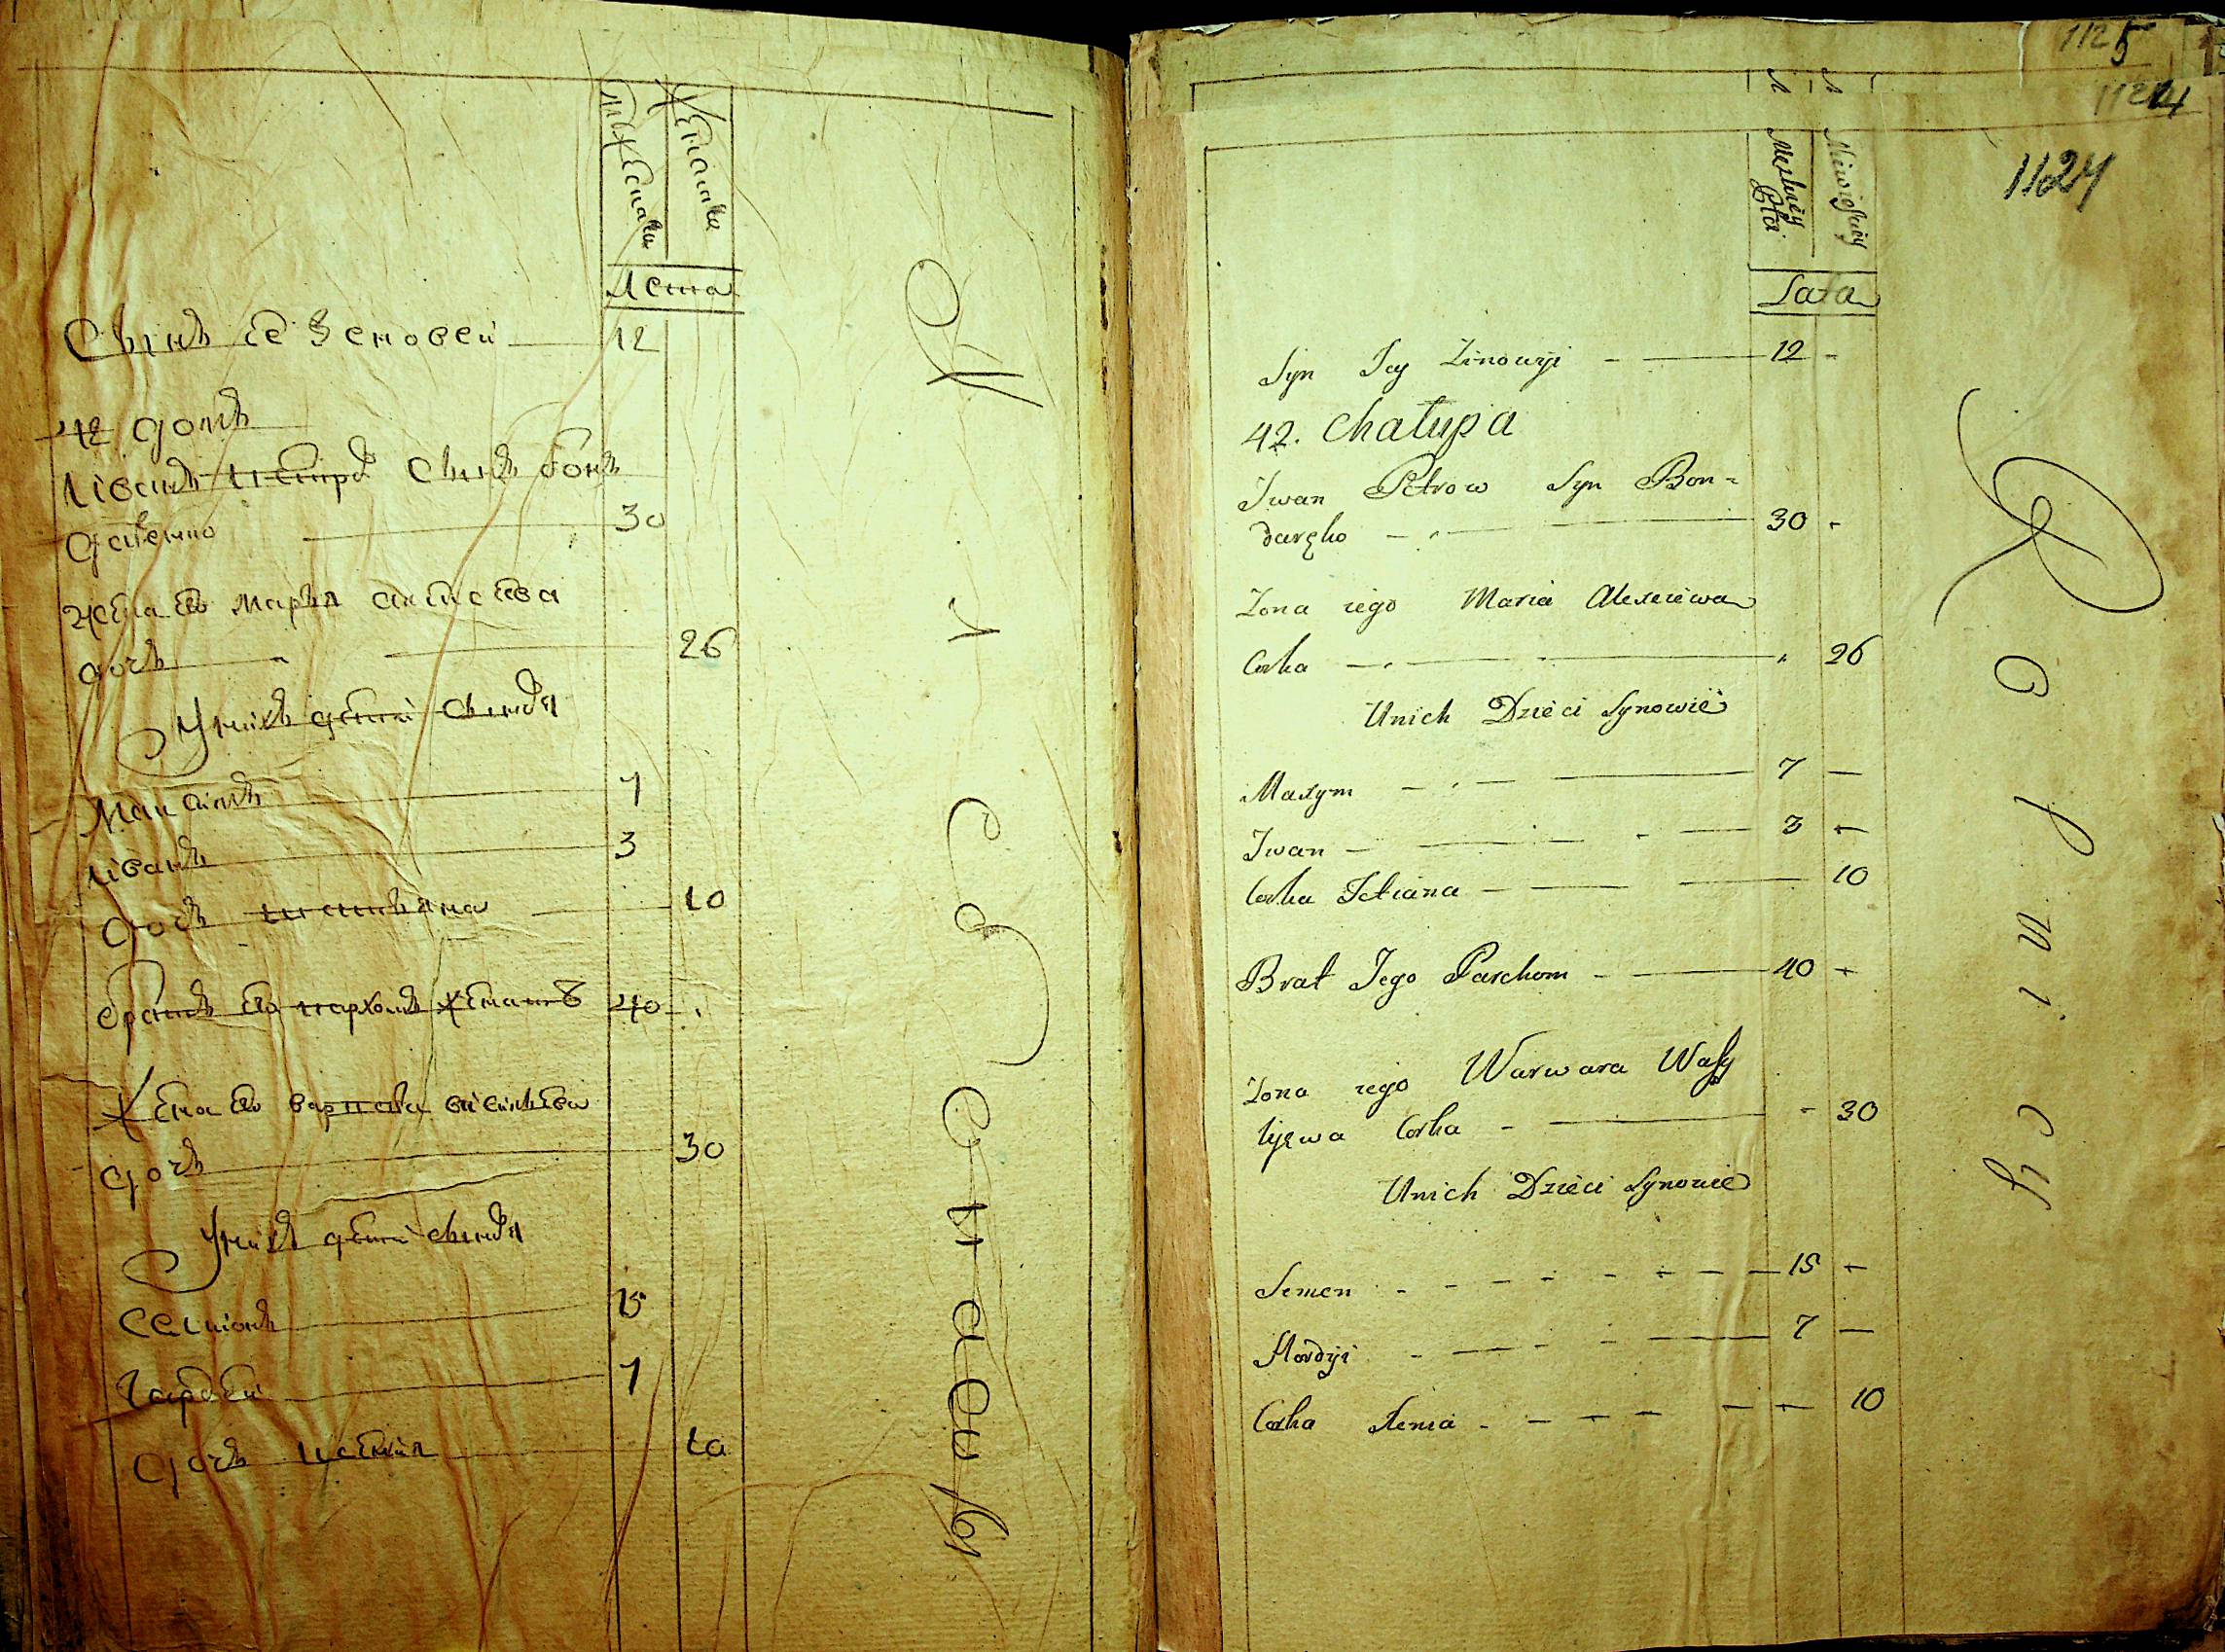 Мужеска
Женска
Лета
Сынъ ее Зеновей 12
42 домъ
Иванъ Петровъ сынъ Бон
даренко 30
Жена его Марья Алексеева
дочь 26
У нихъ дети сыновя
Максимъ 7
Иванъ 3
дочь Татьяна 10
братъ его Пархомъ женатъ 40
Жена его Варвара Васильева
дочь 30
У нихъ дети сыновя
Семионъ 15
Гардей 7
дочь 10
1125
1124
1124
Męskiey Płci
Niewieściey
Lata
Syn Jey Zinowyi 12
42. Chałupa
Jwan Petrow Syn Bon=
daręko 30
Zona iego Maria Alexeiewa
Corka 26
Unich Dzieci Synowie
Maxym 7
Jwan 3
Corka Tetiana 10
Brat Jego Parchom 40
Zona iego Warwara Wasy
lyewa Corka 30
Unich Dzieci Synowie
Semen 15
Hordyi 7
Corka Xenia 10